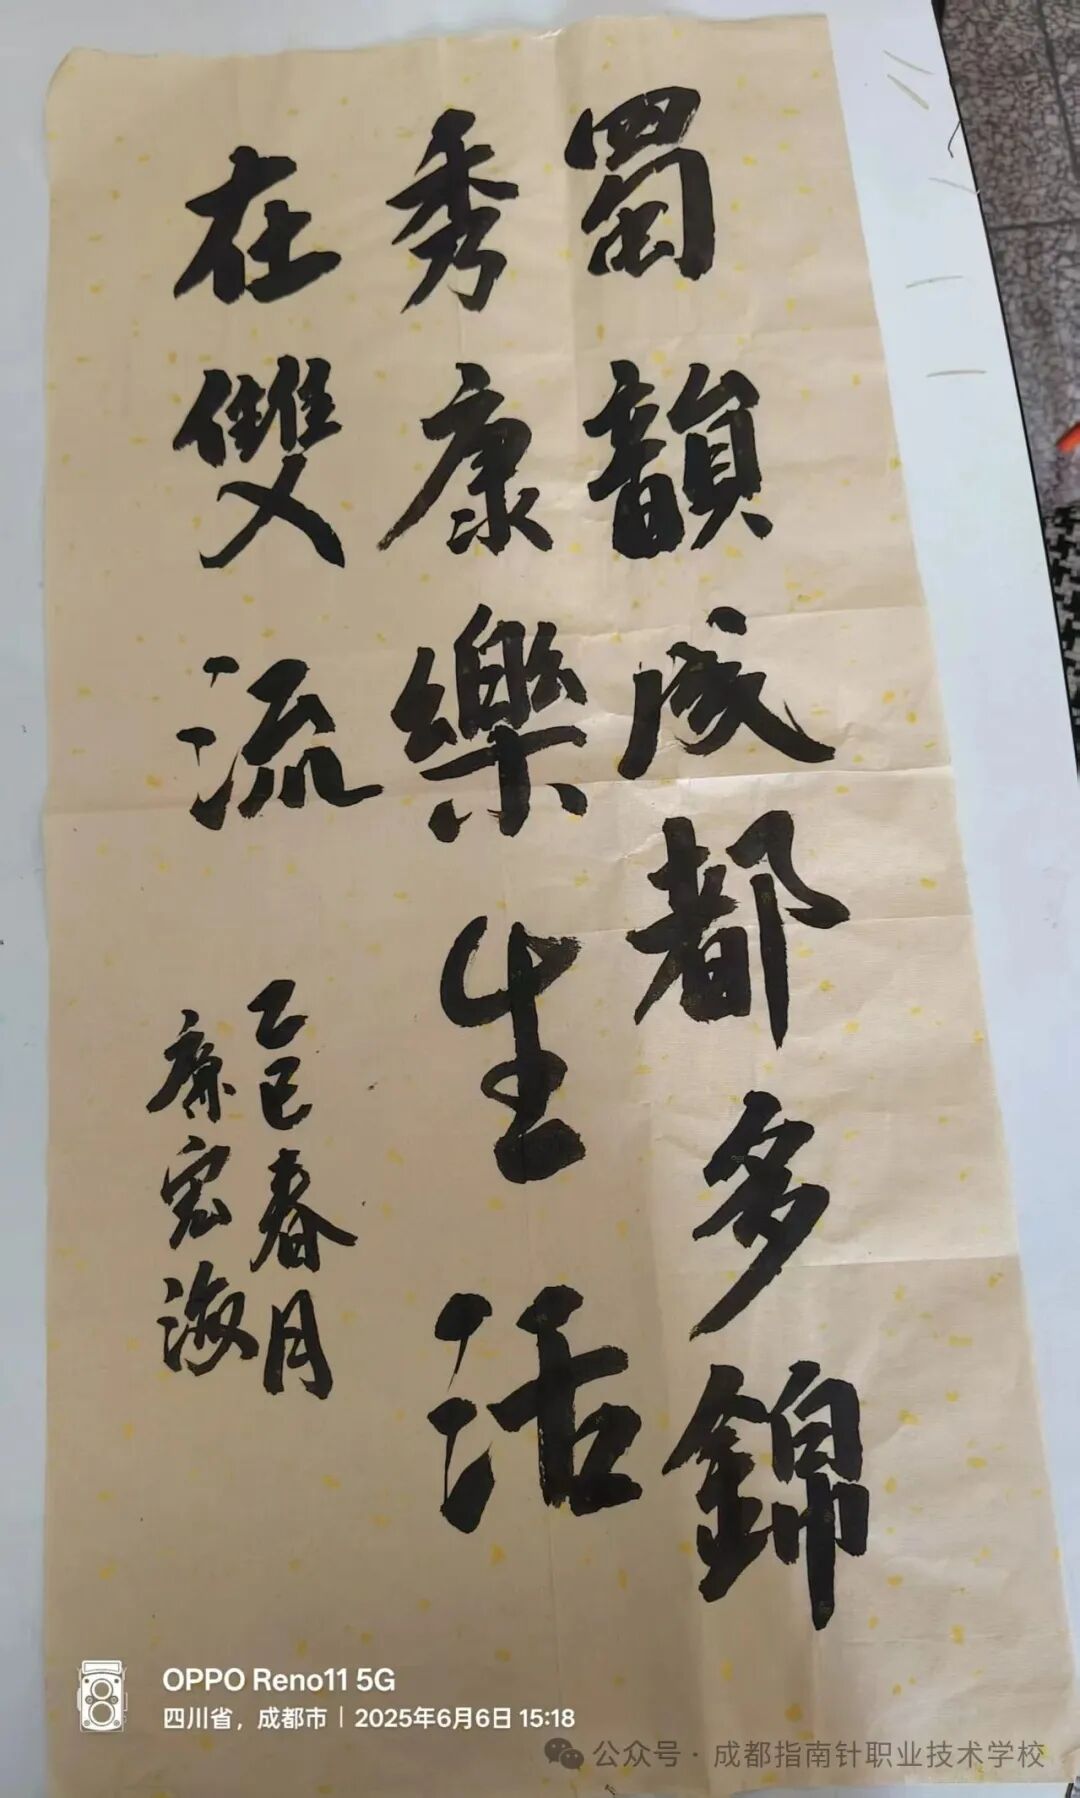 蜀韻成都多錦
秀康樂生活
在雙流
乙巳春月
康宏海
OPPO Reno11 5G
四川省，成都市 | 2025年6月6日 15:18
公众号 · 成都指南针职业技术学校